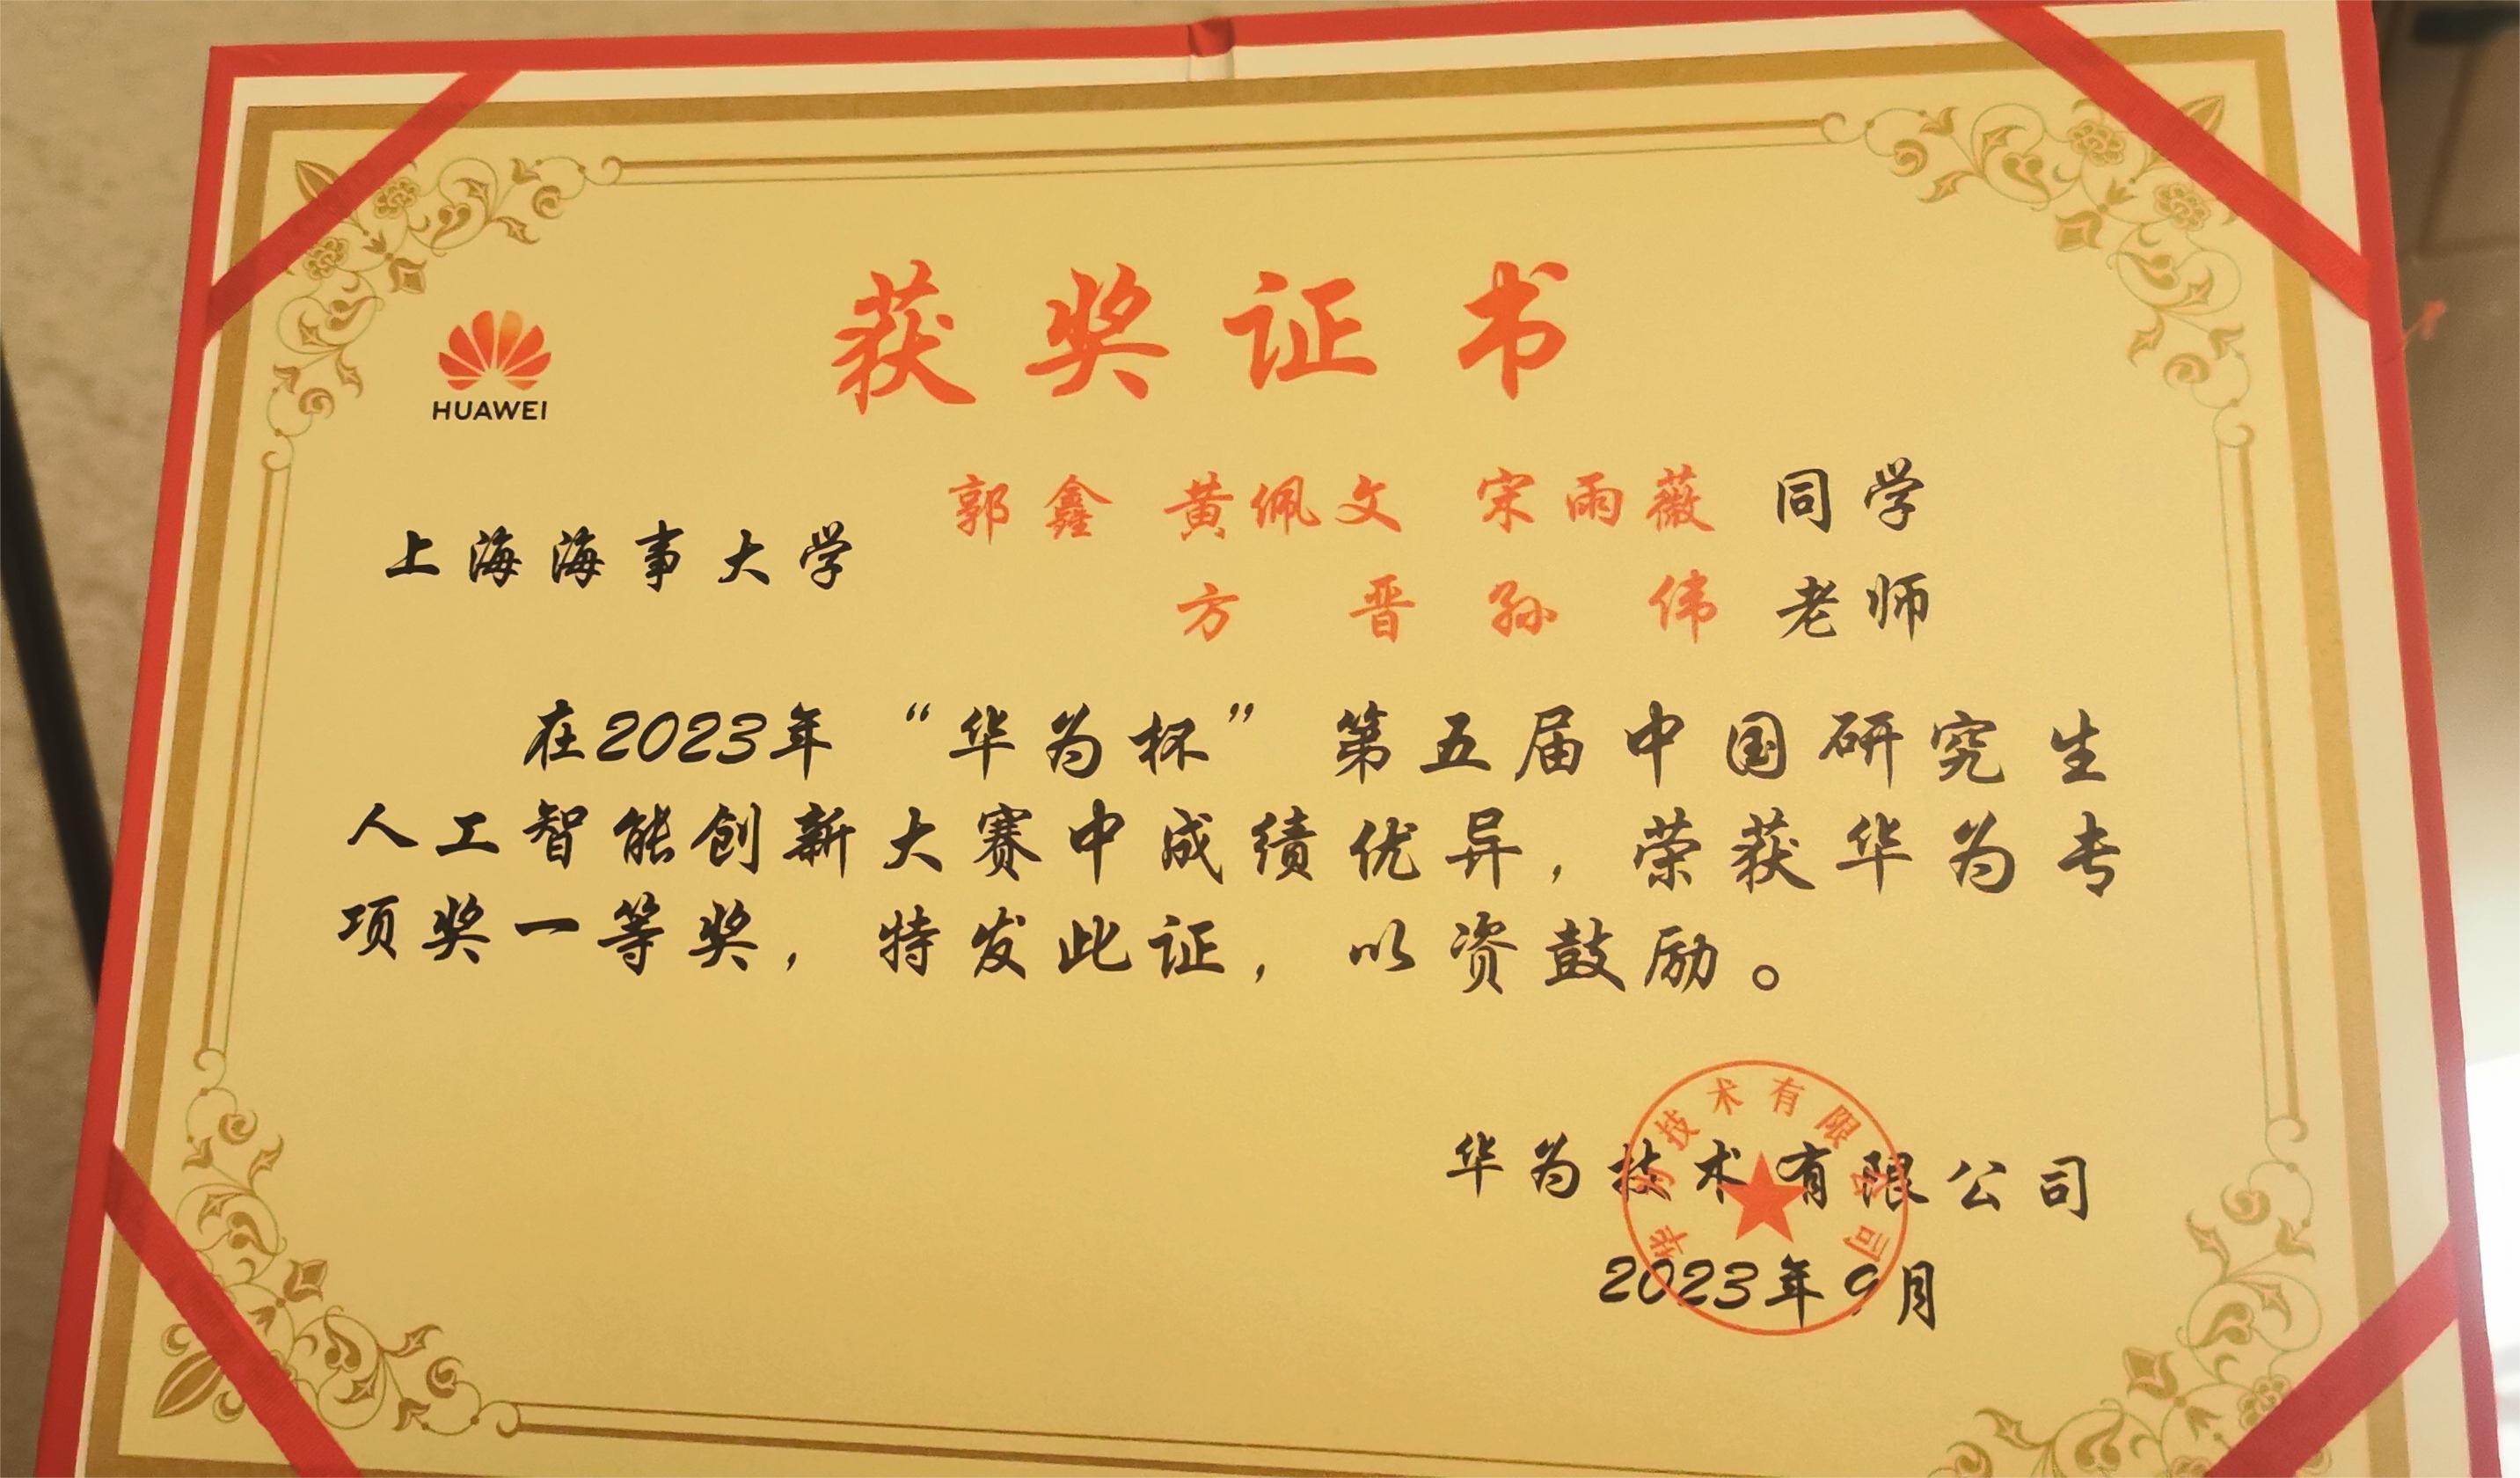 HUAWEI
获奖证书
上海海事大学
郭鑫 黄佩文 宋雨薇 同学
方晋 孙伟 老师
在2023年“华为杯”第五届中国研究生
人工智能创新大赛中成绩优异，荣获华为专
项奖一等奖，特发此证，以资鼓励。
华为技术有限公司
2023年9月
华为技术有限公司